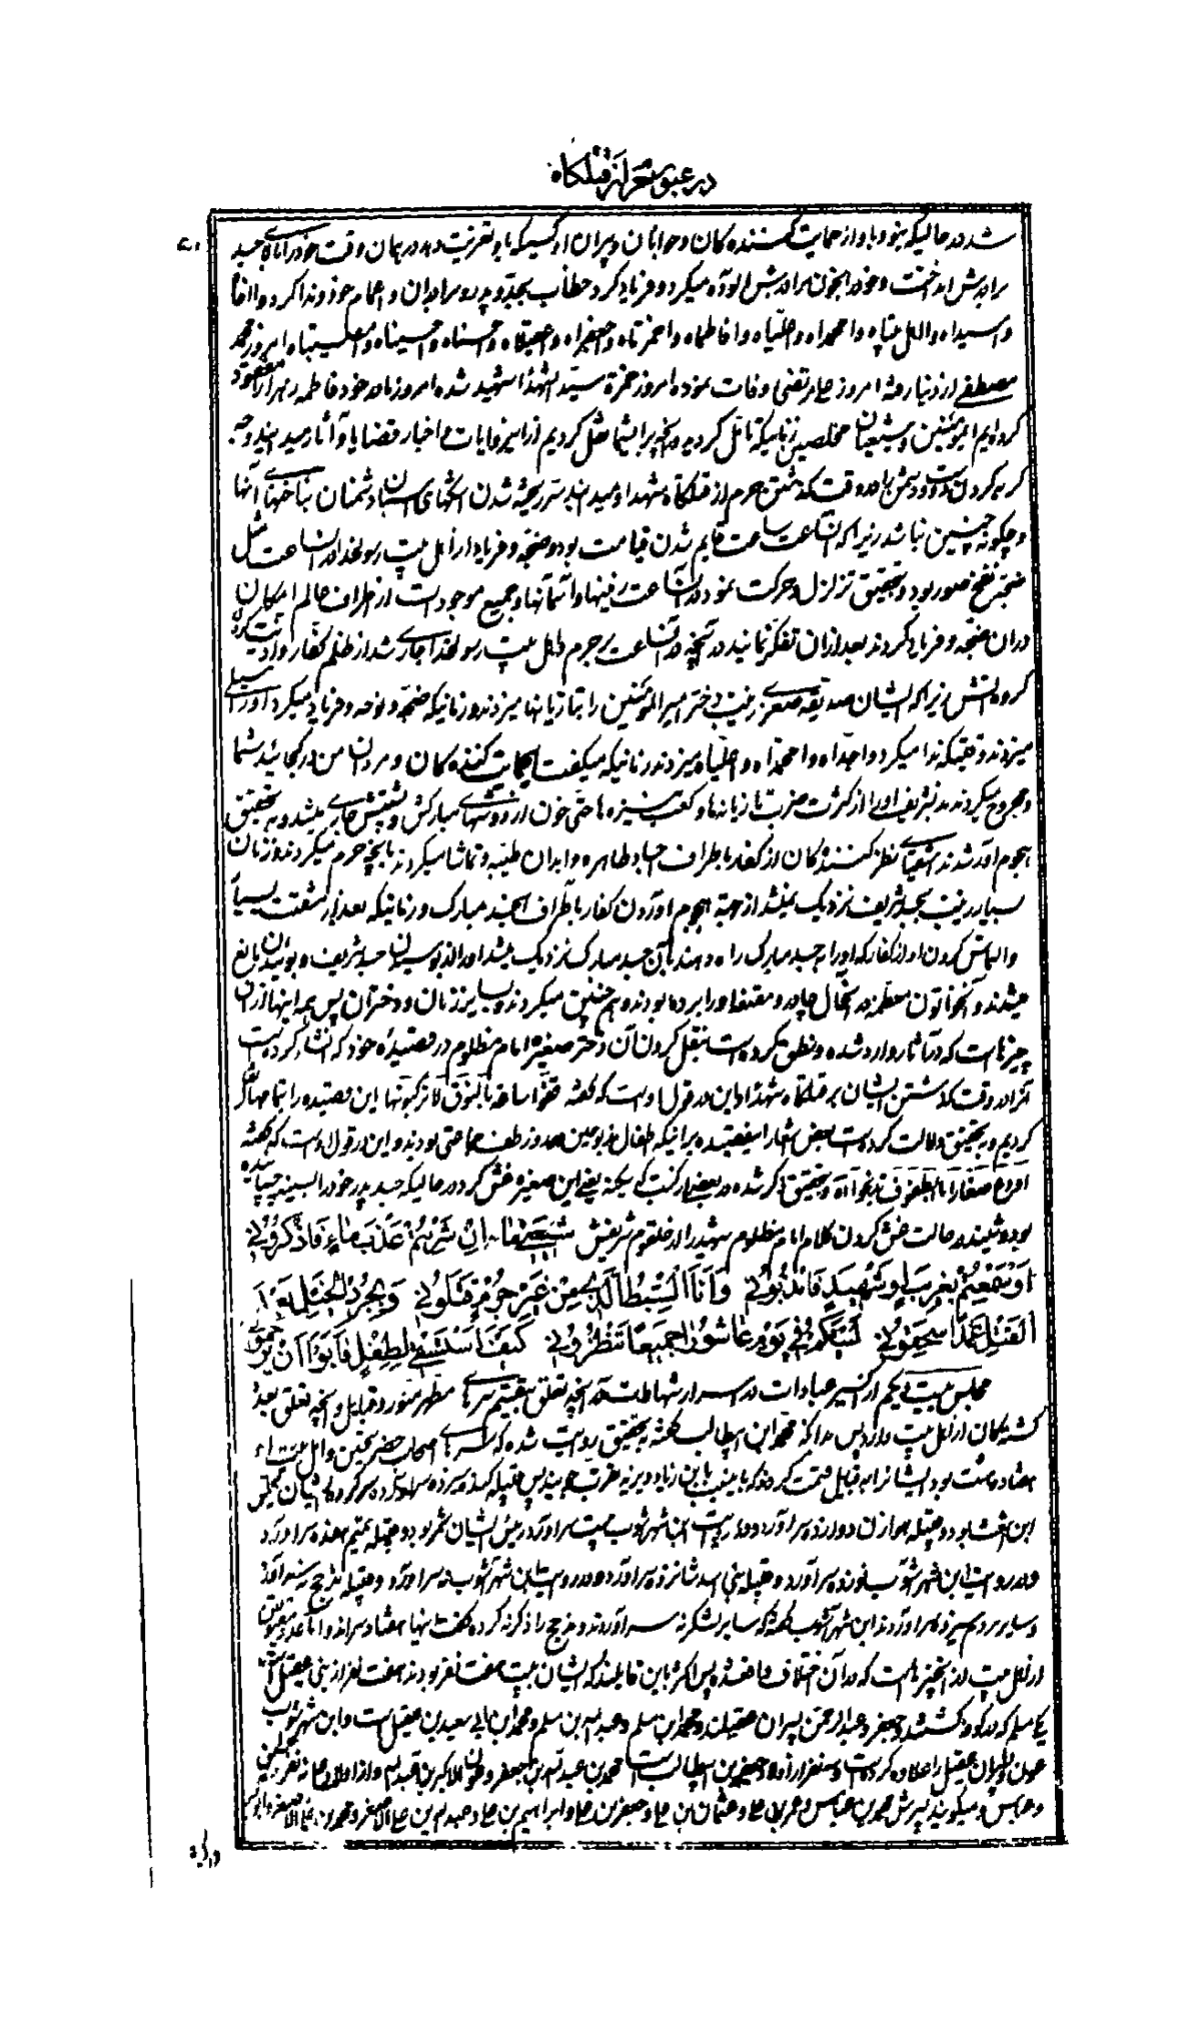 در عبور حرم از قتلگاه
شد در حالیکه نبود با او از حمایت کننده کان و جوانان و پیران او کسیکه باو تعزیت دهد در همان وقت خود را بالای جسد
برادرش انداخت و خود را بخون برادرش آلوده میکرد و فریاد کرد خطاب بجد و پدر و برادران و اعمام خود و ندا کرد وا اخا
وا سیداه وا اهل بیتاه وا محمداه وا علیاه وا فاطماه وا حمزتاه وا جعفراه وا عقیلاه وا حسناه وا حسیناه امروز محمد
مصطفی از دنیا رفته امروز علی مرتضی وفات نموده امروز حمزه سید الشهدا شهید شده امروز مادر خود فاطمه زهرا را مفقود
کرده‌ایم ای مومنین و شیعیان مخلصین زمانیکه تامل کردید در آنچه برای شما نقل کردیم از این روایات و اخبار قضایا و آثار میدانید وجه
گریه کردن دوست و دشمن را در وقت گذشتن حرم از قتلگاه شهدا و میدانید سر ریخته شدن اشکهای اسبان دشمنان بناخنهای آنها
و چگونه چنین نباشد زیرا که آن ساعت ساعت قایم شدن قیامت بود و ضجه و فریاد از اهل بیت رسولخدا در آن ساعت مثل
ضجه نفخ صور بود و بتحقیق تزلزل و حرکت نمود در آن ساعت زمینها و آسمانها و جمیع موجودات از اطراف عالم امکان
در آن ضجه و فریاد کردند بعد از آن تفکر نمائید در آنچه در آن ساعت بر حرم و اهل بیت رسولخدا جاری شد از ظلم کفار و اذیت کردن
گروه آتش زیرا که ایشان صدیقه صغری زینب دختر امیر المومنین را بتازیانها میزدند و زمانیکه ضجه و نوحه و فریاد میکرد او را سیلی
میزدند وقتیکه ندا میکرد وا جداه وا محمداه وا علیاه میزدند و زمانیکه میگفت ای حمایت کننده کان و مردان من در کجائید شما
و مجروح میکردند بدن شریف او را از کثرت ضرب تازیانه‌ها و کعب نیزه ها حتی خون از دوشهای مبارکش و پشتش جاری میشد و بتحقیق
هجوم آور شدند اشقیای نظر کننده گان از کفار باطراف اجساد طاهره و ابدان طیبه و تماشا میکردند بآنچه حرم میکردند و زمان
بسیار زینب بجسد شریف نزدیک نمیشد از جهة هجوم آوردن کفار باطراف آن جسد مبارک و زمانیکه بعد از مشقت بسیار
و التماس کردن او از کفار که او را بر جسد مبارک راه دهند بآن جسد مبارک نزدیک میشد او را از بوسیدن جسد شریف و بوئیدن مانع
میشدند و آنخاتون معظمه در آنحال چادر و مقنعه او را برده بودند و هم چنین میکردند بسایر زنان و دختران پس همه اینها از آن
چیزهاست که در آثار وارد شده و نطق کرده است بنقل کردن آن دختر صغیره امام مظلوم در قصیده خود که انشاء کرده است
آنرا در وقت گذشتن ایشان بر قتلگاه شهدا و این در قول اوست که گفته قفوا ساعة بالنوق لا تزکبونها این قصیده را بتمامها نقل
کردیم و بتحقیق دلالت کرده است بعض اشعار این قصیده بر اینکه اطفال مذبوحین در روز طف جماعتی بودند و این در قول اوست که گفته
و بتحقیق ذکر شده در بعضی از کتب که سکینه یعنی این صغیره غش کرد در حالیکه جسد پدر خود را بسینه چسپانیده
بود و شنید در حالت غش کردن کلام امام مظلوم شهید را از حلقوم شریفش شیعتی ما ان شربتم عذب ماء فاذکرونی
او سمعتم بغریب او شهید فاندبونی وانا السبط الذی من غیر جرم قتلونی و بجرد الخیل بعد
القتل عمدا سحقونی لیتکم فی یوم عاشورا جمیعا تنظرونی کیف استسقی لطفل فابوا ان یرحمونی
مجلس بیست و یکم از اکسیر عبادات در اسرار شهادات در آنچه تعلق بتقسیم سرهای مطهر منور در قبایل و آنچه تعلق بعدد
کشته گان از اهل بیت دارد پس بدانکه محمد ابن ابیطالب گفته بتحقیق روایت شده که سرهای اصحاب حضرت حسین و اهل بیت او
هفتاد و هشت بود و ایشانرا بر قبایل قسمت کردند که باین سبب بابن زیاد و یزید تقرب جویند پس قبیله کنده سیزده سر آورد سرکرده ایشان قیس
ابن اشعث بود و قبیله هوازن دوازده سر آورد و در روایت ابن شهر آشوب بیست سر آورد رئیس ایشان شمر بود و قبیله تمیم هفده سر آورد
و در روایت ابن شهر آشوب نوزده سر آورد و قبیله بنی اسد شانزده سر آورد و در روایت ابن شهر آشوب نه سر آورد و قبیله مذحج هفت سر آورد
و سایر مردم سیزده سر آوردند ابن شهر آشوب گفته که سایر لشکر نه سر آوردند و مذحج را ذکر نکرده گفت اینها هفتاد سر اند و اما عدد مقتولین
از اهل بیت در آن چیزهاست که در آن اختلاف واقع شده پس اکثر باین قایلند که ایشان بیست و هفت نفر بودند هفت نفر از بنی عقیل
یکی مسلم که در کوفه کشتند و جعفر و عبدالرحمن پسران عقیلند و محمد ابن مسلم و عبدالله بن مسلم و محمد ابن ابی سعید بن عقیل است و ابن شهر آشوب
عون و پسران عقیل را علاوه کرده است و سه نفر از اولاد جعفر بن ابیطالب است محمد بن عبدالله بن جعفر و عون الاکبر بن عبدالله و از اولاد علی نه نفر حسین
و عباس و میگویند پسرش محمد بن عباس و عمر بن علی و عثمان بن علی و جعفر بن علی و ابراهیم بن علی و عبدالله بن علی الاصغر و محمد بن علی الاصغر و ابو بکر